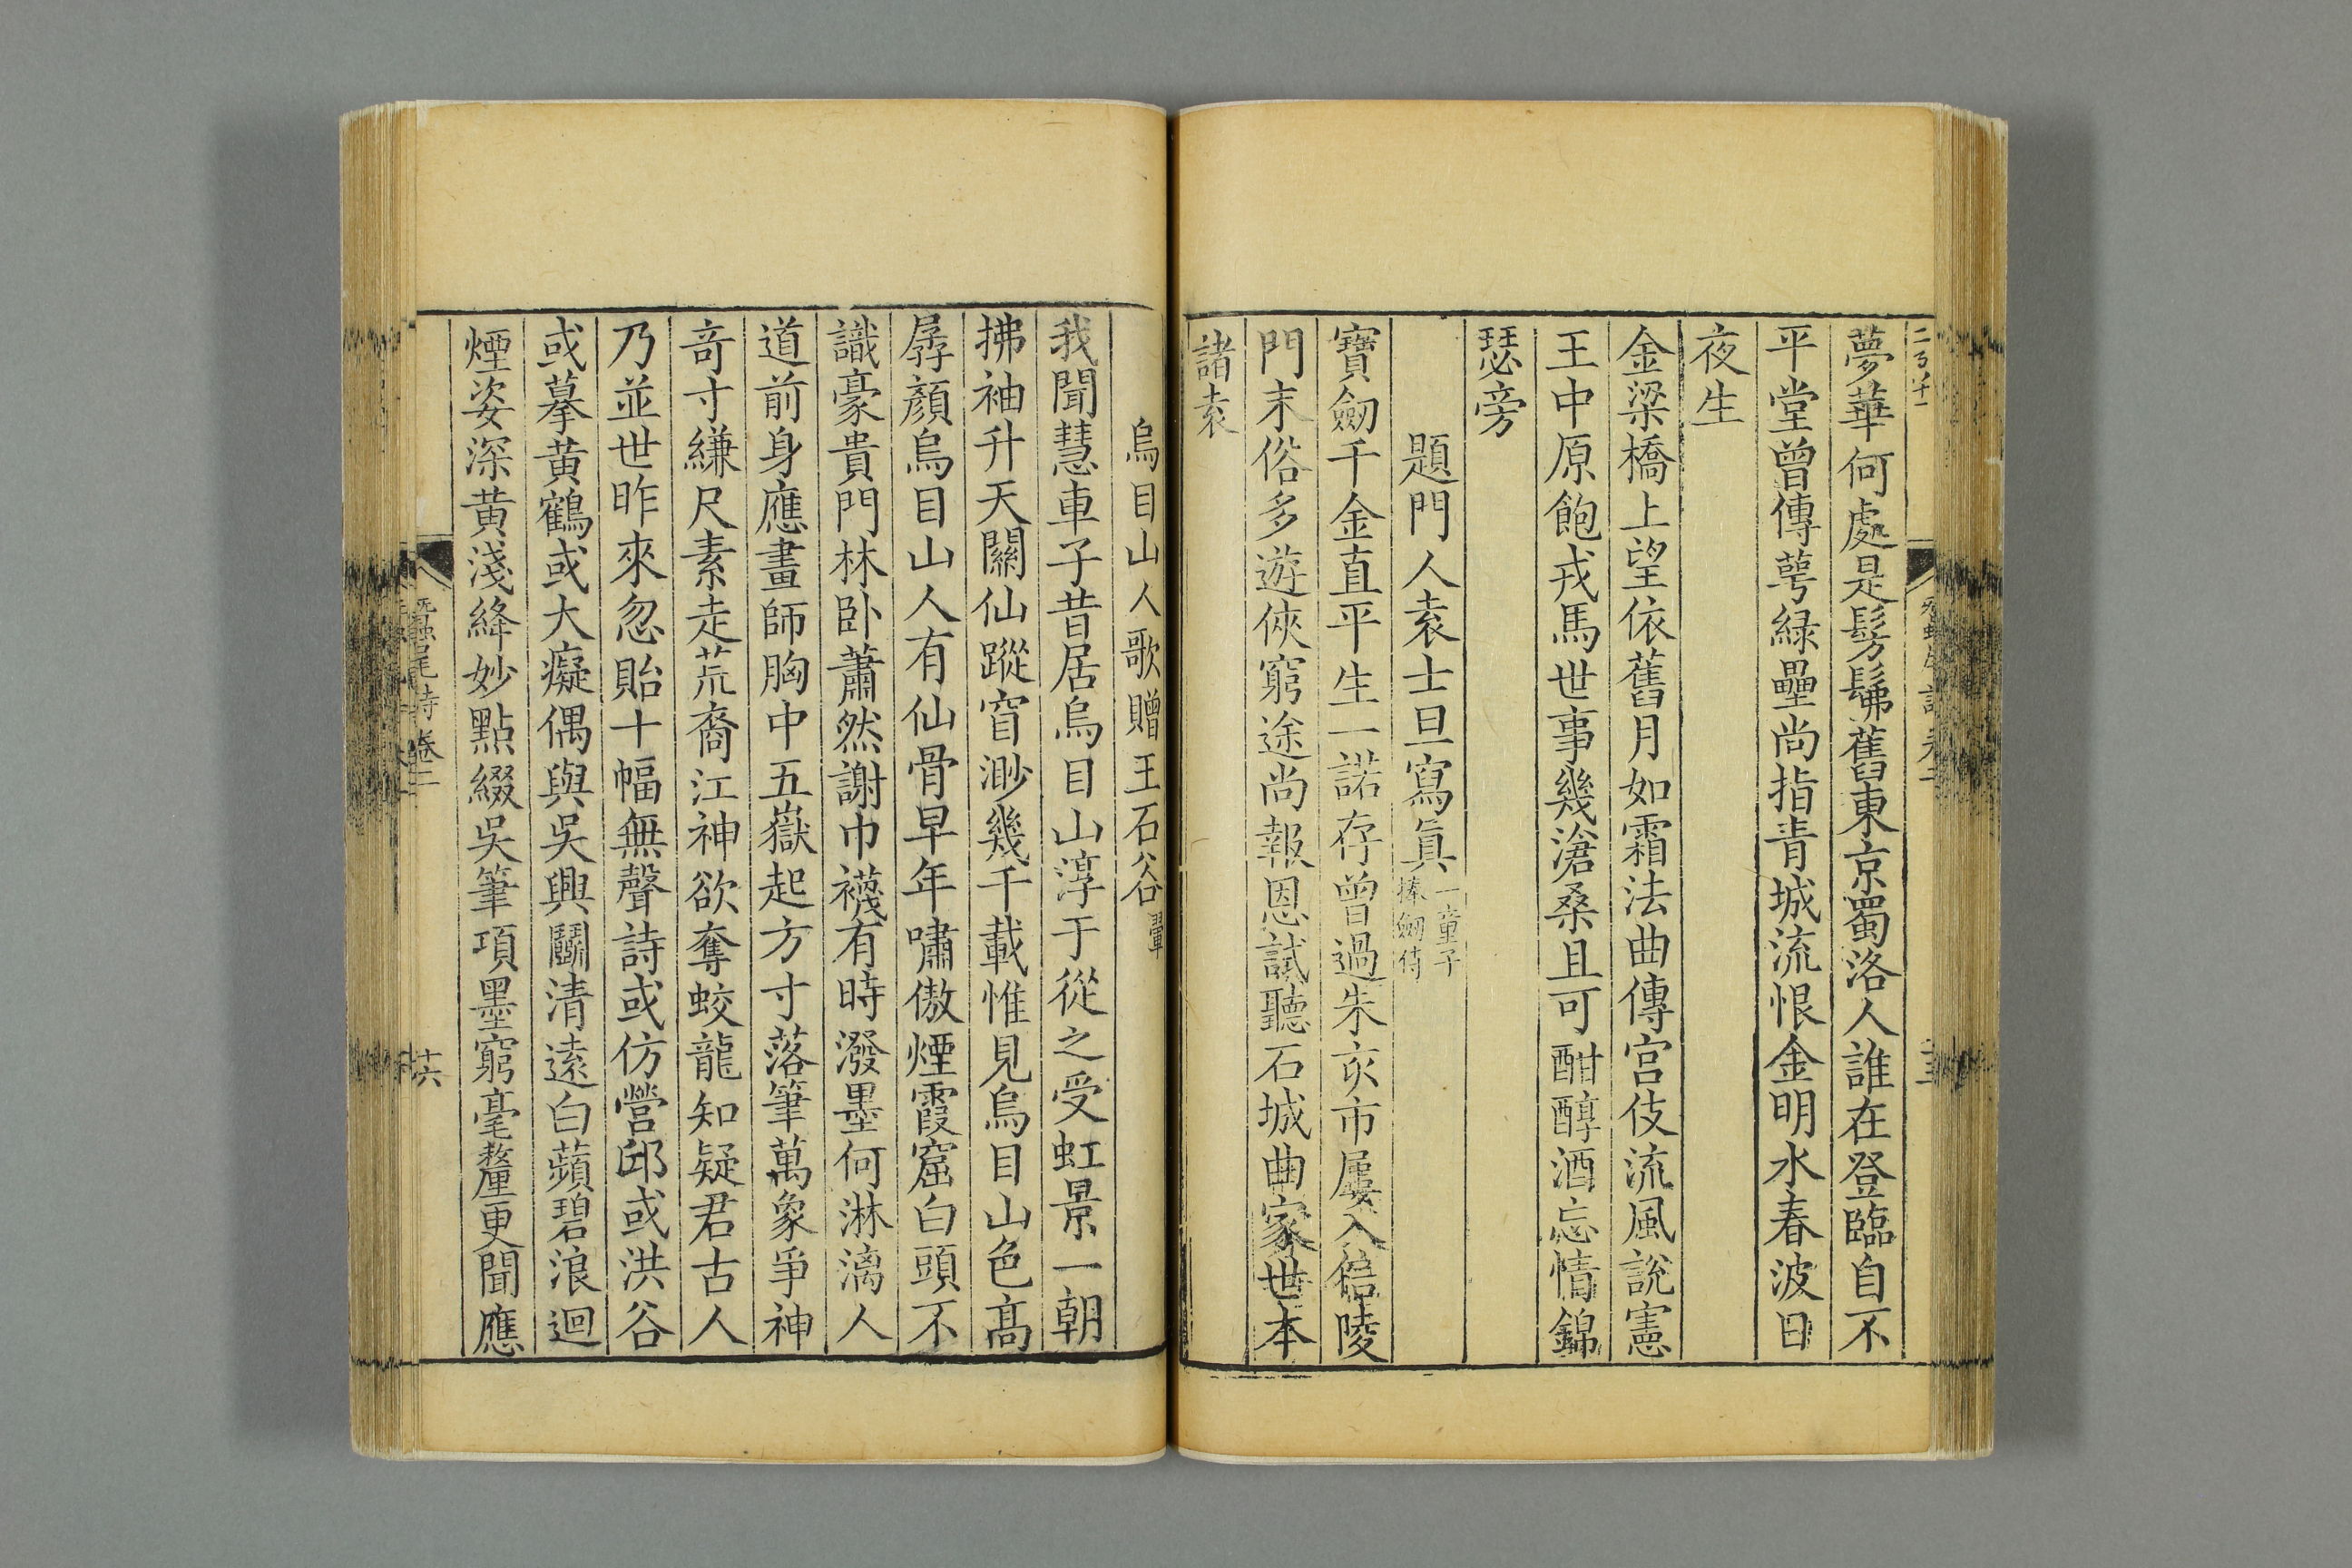 夢華何處是髣髴舊東京蜀洛人誰在登臨自不
平堂曾傳萼緑壘尚指青城流恨金明水春波日
夜生
金梁橋上望依舊月如霜法曲傳宫伎流風說憲
王中原飽戎馬世事幾滄桑且可酣醇酒忘情錦
瑟旁
題門人袁士旦寫眞一童子捧劒侍
寶劒千金直平生一諾存曾過朱亥市屢入信陵
門末俗多遊俠窮途尚報恩試聽石城曲家世本
諸袁
烏目山人歌贈王石谷翬
我聞慧車子昔居烏目山淳于從之受虹景一朝
拂袖升天關仙蹤窅渺幾千載惟見烏目山色高
孱顏烏目山人有仙骨早年嘯傲煙霞窟白頭不
識豪貴門林卧蕭然謝巾襪有時潑墨何淋漓人
道前身應畫師胸中五嶽起方寸落筆萬象爭神
竒寸縑尺素走荒裔江神欲奪蛟龍知疑君古人
乃並世昨來忽貽十幅無聲詩或仿營邱或洪谷
或摹黄鶴或大癡偶與吳興鬭清遠白蘋碧浪迴
煙姿深黄淺絳妙點綴吳筆項墨窮毫釐更聞應
蠶尾詩卷二
十六